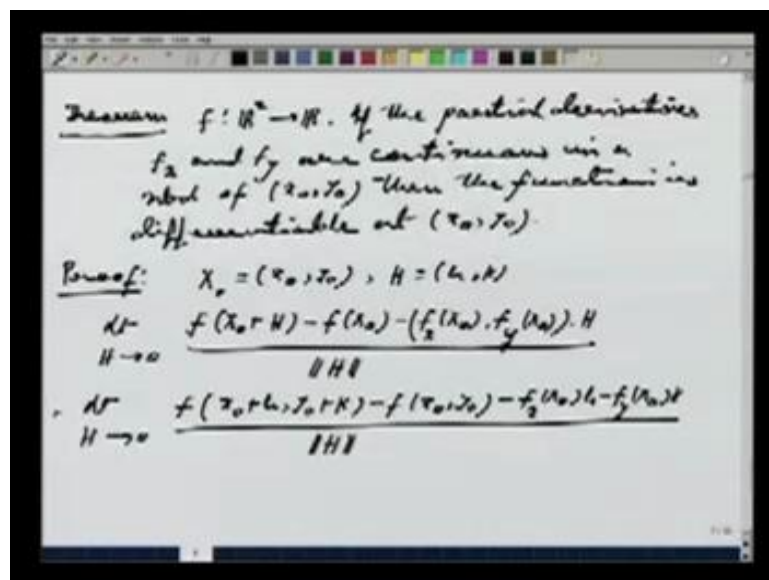 Theorem f : ℝ² → ℝ. If the partial derivatives
f_x and f_y are continuous in a
nbd of (x₀, y₀) then the function is
differentiable at (x₀, y₀).
Proof: X₀ = (x₀, y₀), H = (h, k)
lt f(X₀ + H) − f(X₀) − (f_x(X₀), f_y(X₀)) . H
H → 0 ‖H‖
lt f(x₀ + h, y₀ + k) − f(x₀, y₀) − f_x(X₀)h − f_y(X₀)k
H → 0 ‖H‖